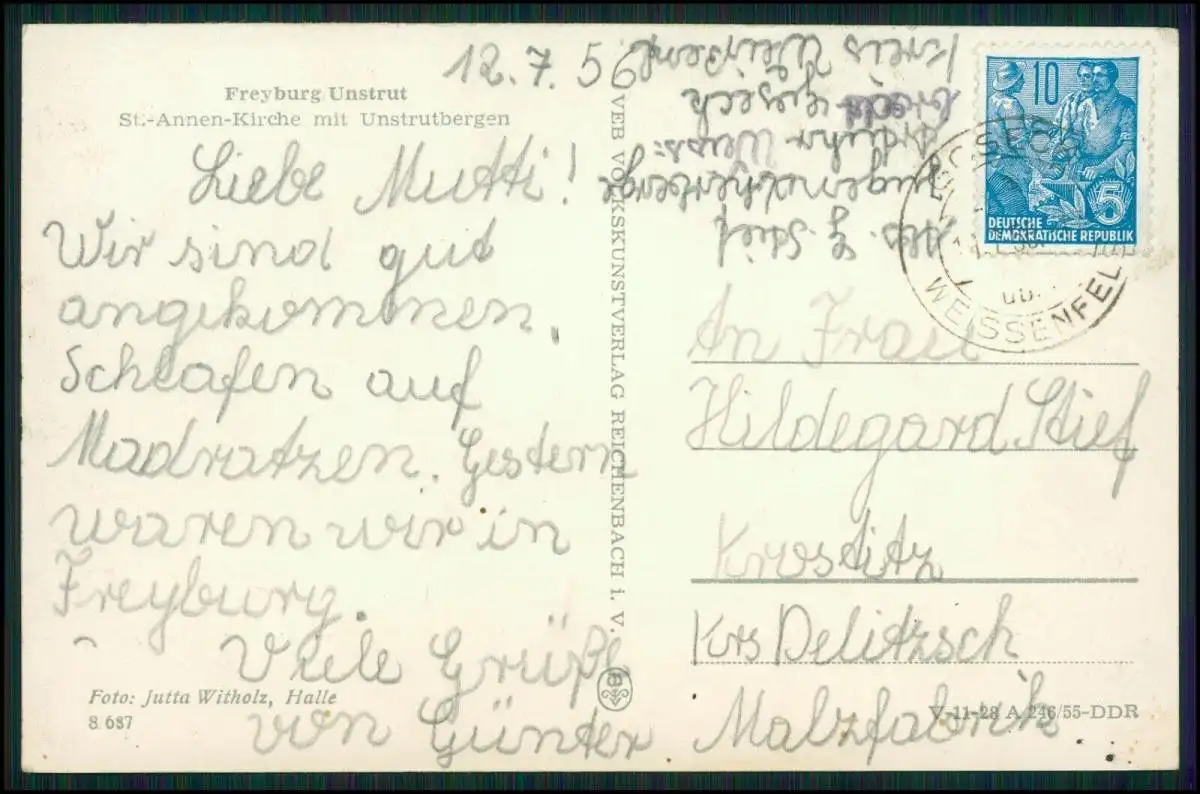 12.7.56
Freyburg Unstrut
St.-Annen-Kirche mit Unstrutbergen
Liebe Mutti!
Wir sind gut
angekommen.
Schlafen auf
Madratzen. Gestern
waren wir in
Freyburg.
Viele Grüße
von Günter
Foto: Jutta Witholz, Halle
8 687
VEB VOLKSKUNSTVERLAG REICHENBACH i. V.
Abs. G. Stief
Jugendherberge
Goseck
Kreis
10
5
DEUTSCHE
DEMOKRATISCHE REPUBLIK
GOSECK
WEISSENFEL
An Frau
Hildegard Stief
Krostitz
Krs Delitzsch
Malzfabrik
V-11-28 A 246/55-DDR